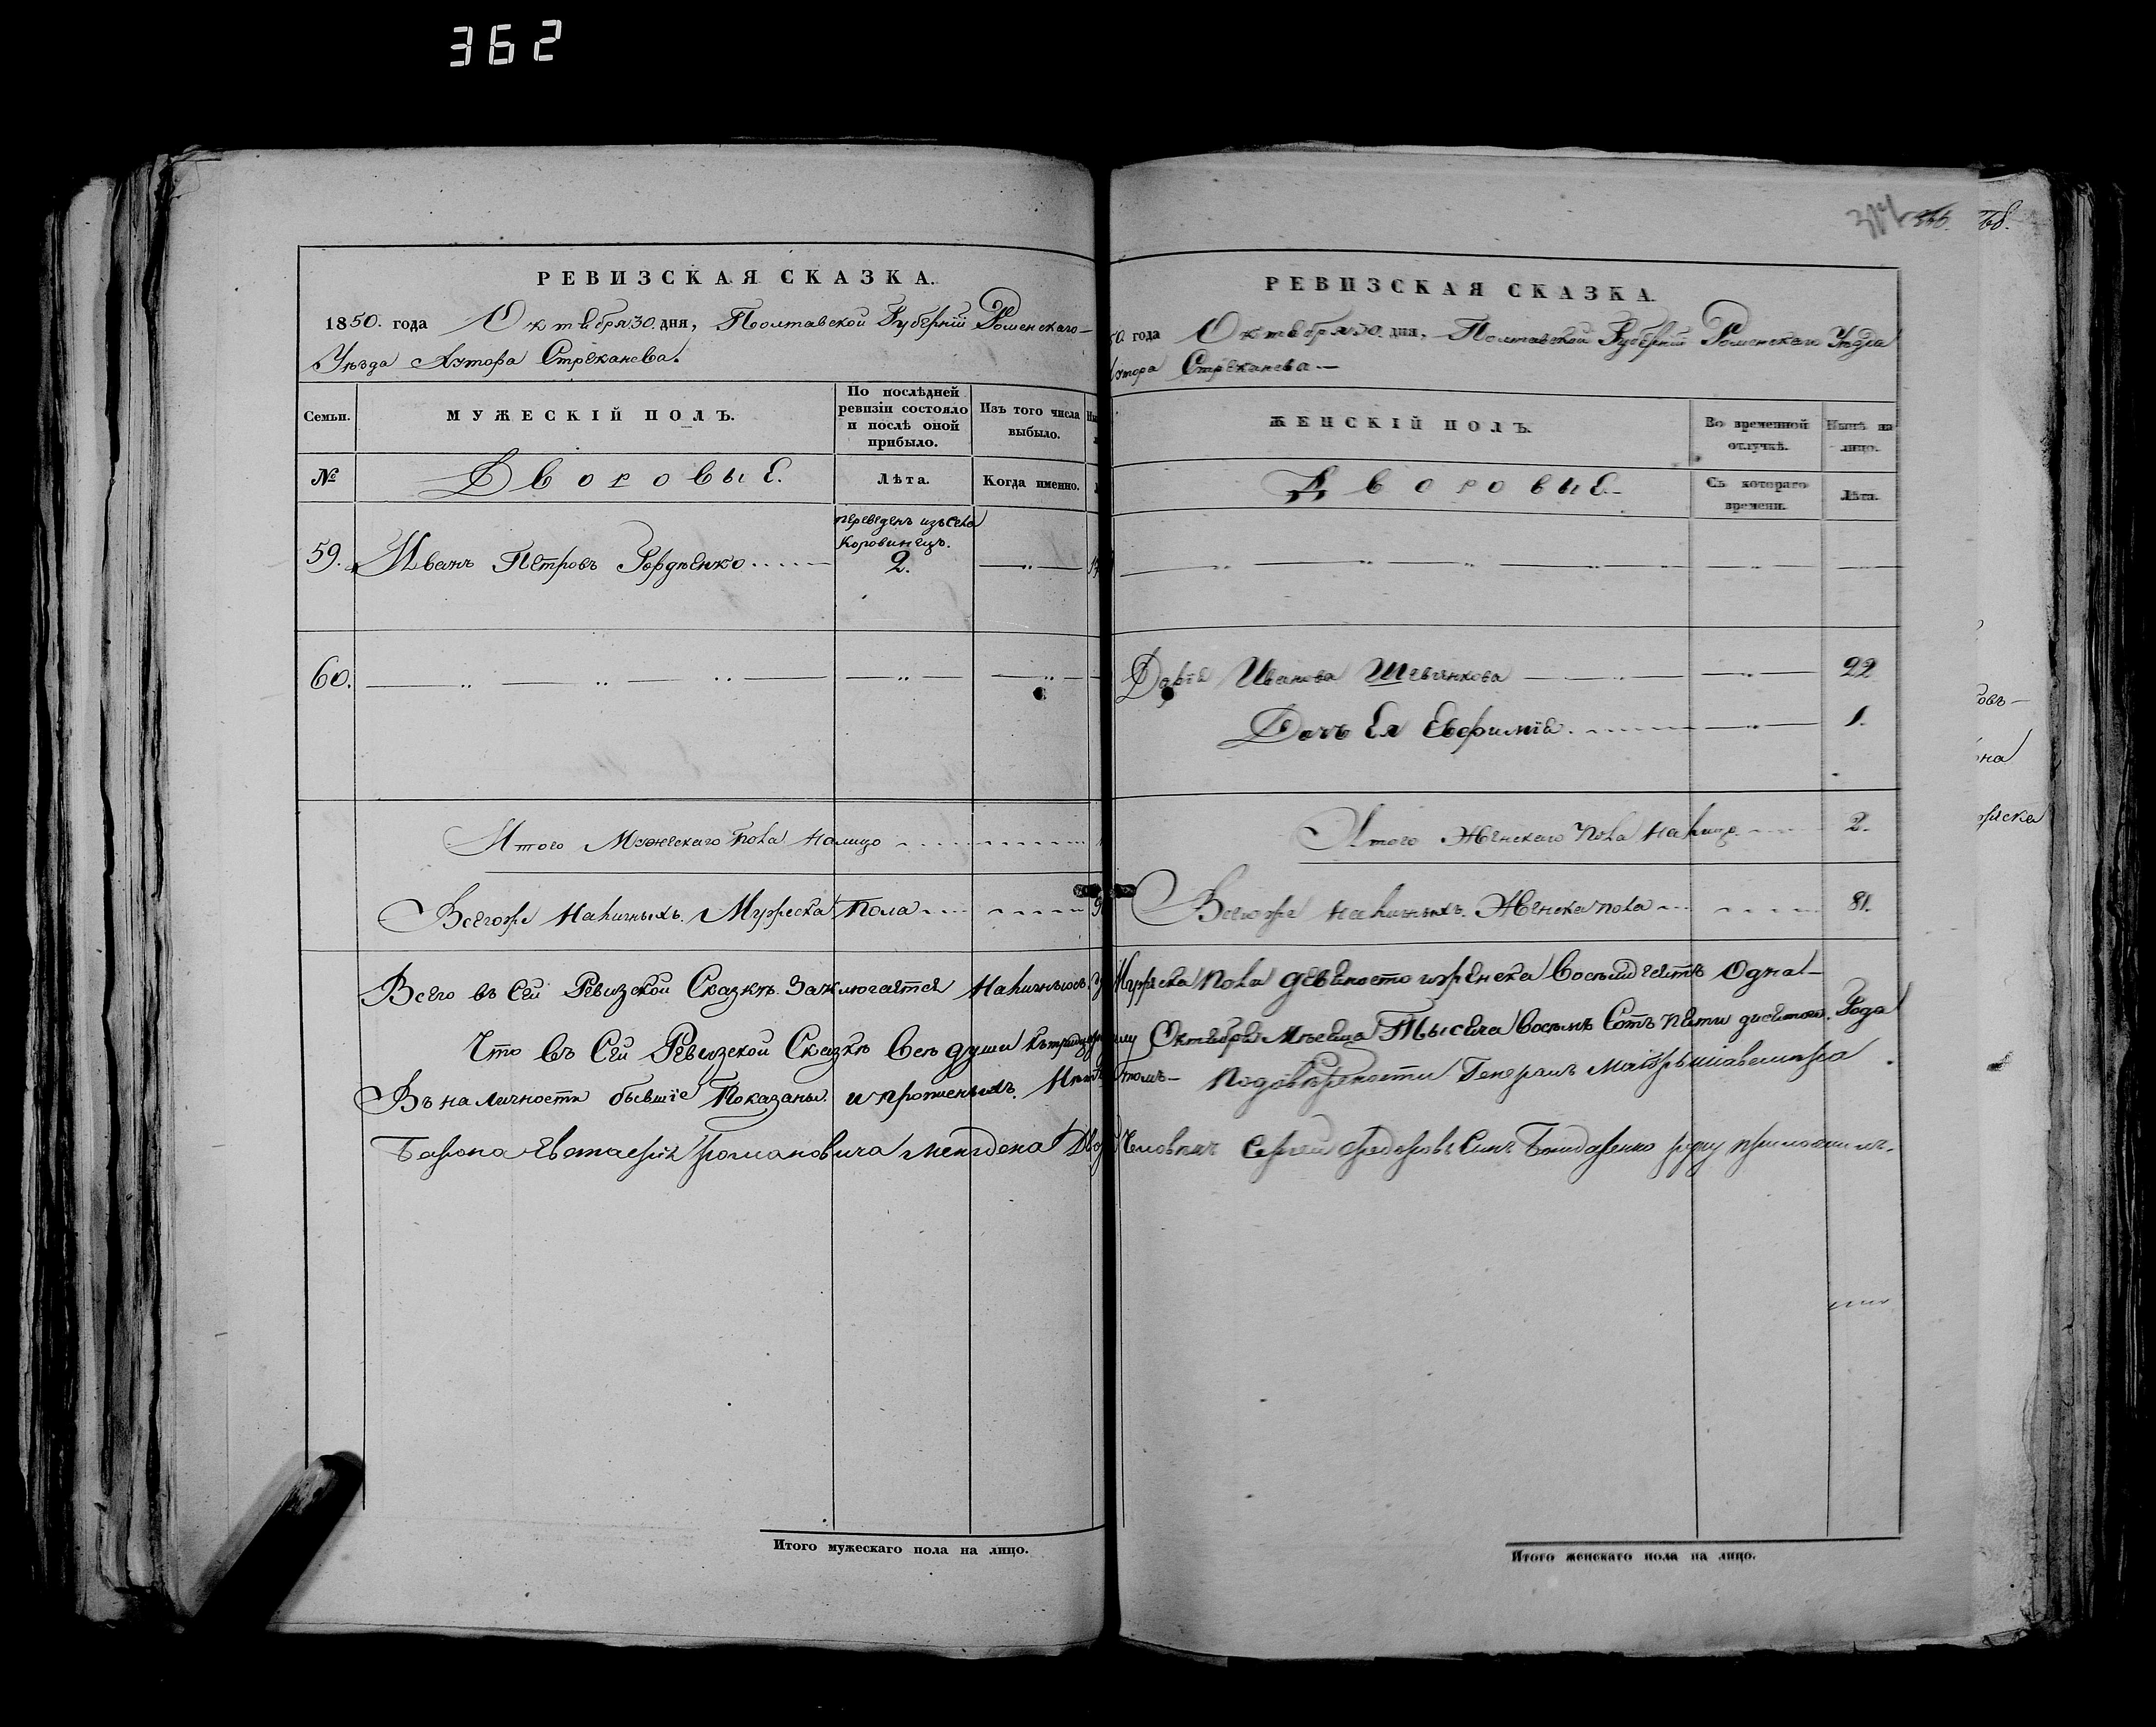 362
РЕВИЗСКАЯ СКАЗКА.
1850. года Октября 30. дня, Полтавской Губерніи Роменскаго
Уѣзда Хутора Стрѣканева.
Семьи.
МУЖЕСКІЙ ПОЛЪ.
По послѣдней ревизіи состояло и послѣ оной прибыло.
Изъ того числа выбыло.
№
Дворовые.
Лѣта.
Когда именно.
переведенъ изъ села
Коровинецъ.
59. Иванъ Петровъ Гордѣенко 2.
60.
Итого Мужескаго Пола налицо
Всегоже Наличныхъ Мужеска Пола
Итого мужескаго пола на лицо.
366. 368.
РЕВИЗСКАЯ СКАЗКА.
50. года Октября 30. дня, Полтавской Губерніи Роменскаго Уѣзда
Хутора Стрѣканева
ЖЕНСКІЙ ПОЛЪ.
Во временной отлучкѣ.
Нынѣ на лицо.
Дворовые.
Съ котораго времени.
Лѣта.
Дарія Иванова Шевченкова 22
Дочь Ея Евфимія. 1.
Итого Женскаго Пола Налицо 2.
Всегоже Наличныхъ Женска пола 81.
Всего въ Сей Ревизской Сказкѣ Заключается Наличныхъ Мужеска Пола девяносто иженска Восимдесятъ Одна
Что Въ Сей Ревизской Сказкѣ Всѣ души Октября Мѣсяца Тысяча Восемь Сотъ Пятидесятого Года
Въ наличности бывшіе Показаны и Нѣтъ томъ Подовѣрености Генералъ Маіора
Барона Евстафія Романовича Менгдена Человѣкъ Сергей Федоровъ Сынъ Бондаренко руку приложилъ.
Итого женскаго пола на лицо.